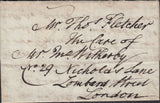 Mr Thos Fletcher
The Care of
Mr Jno Wilkerby
No 29 Nicholas Lane
Lombard Street
London